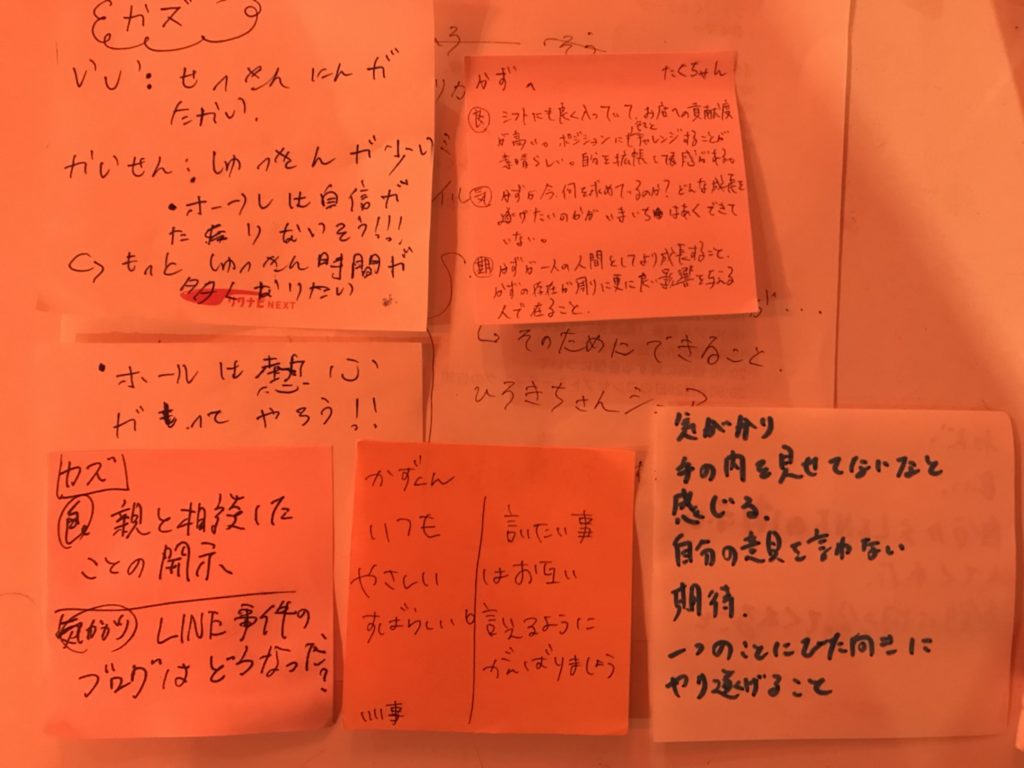 カズ
いい: せっきゃくにんが
たかい.
かいせん: しゅっきんが少ない
・ホールは自信が
たりないそう!!!
↳ もっと しゅっきん時間が
タタしかりたい
クックナビNEXT
・ホールは熱心
がもって やろう!!
かずへ
たくちゃん
良 シフトにも良く入っていて、お店への貢献度
が高い。ポジションにもチャレンジすることが
素晴らしい。自分を拡張してる感がある。
気 かずが今、何を求めているのか?どんな成長を
遂げたいのかがいまいちはあくできて
いない。
期 かずが一人の人間としてより成長すること。
かずの存在が周りに更に良い影響を与える
人で在ること.
↳ そのためにできること
ひろきちさん
カズ
良 親と相談した
ことの開示、
気がかり LINE事件の
ブログはどうなった?
かずくん
いつも
やさしい
すばらしい
いい事
言いたい事
はお互い
言えるように
がんばりましょう
気がかり
手の内を見せてないなと
感じる.
自分の意見を言わない
期待.
一つのことにひた向きに
やり遂げること